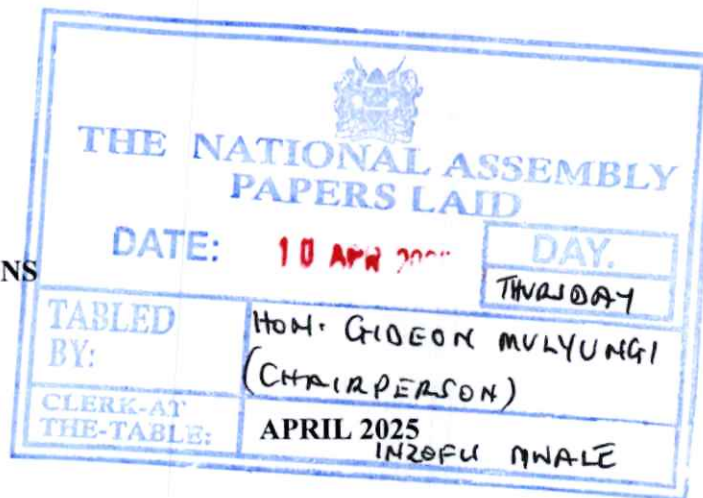 THE NATIONAL ASSEMBLY
PAPERS LAID
DATE: 10 APR
DAY.
THURSDAY
NS
TABLED
BY:
HON. GIDEON MULYUNGI
(CHAIRPERSON)
CLERK-AT
THE-TABLE:
APRIL 2025
INZOFU MWALE